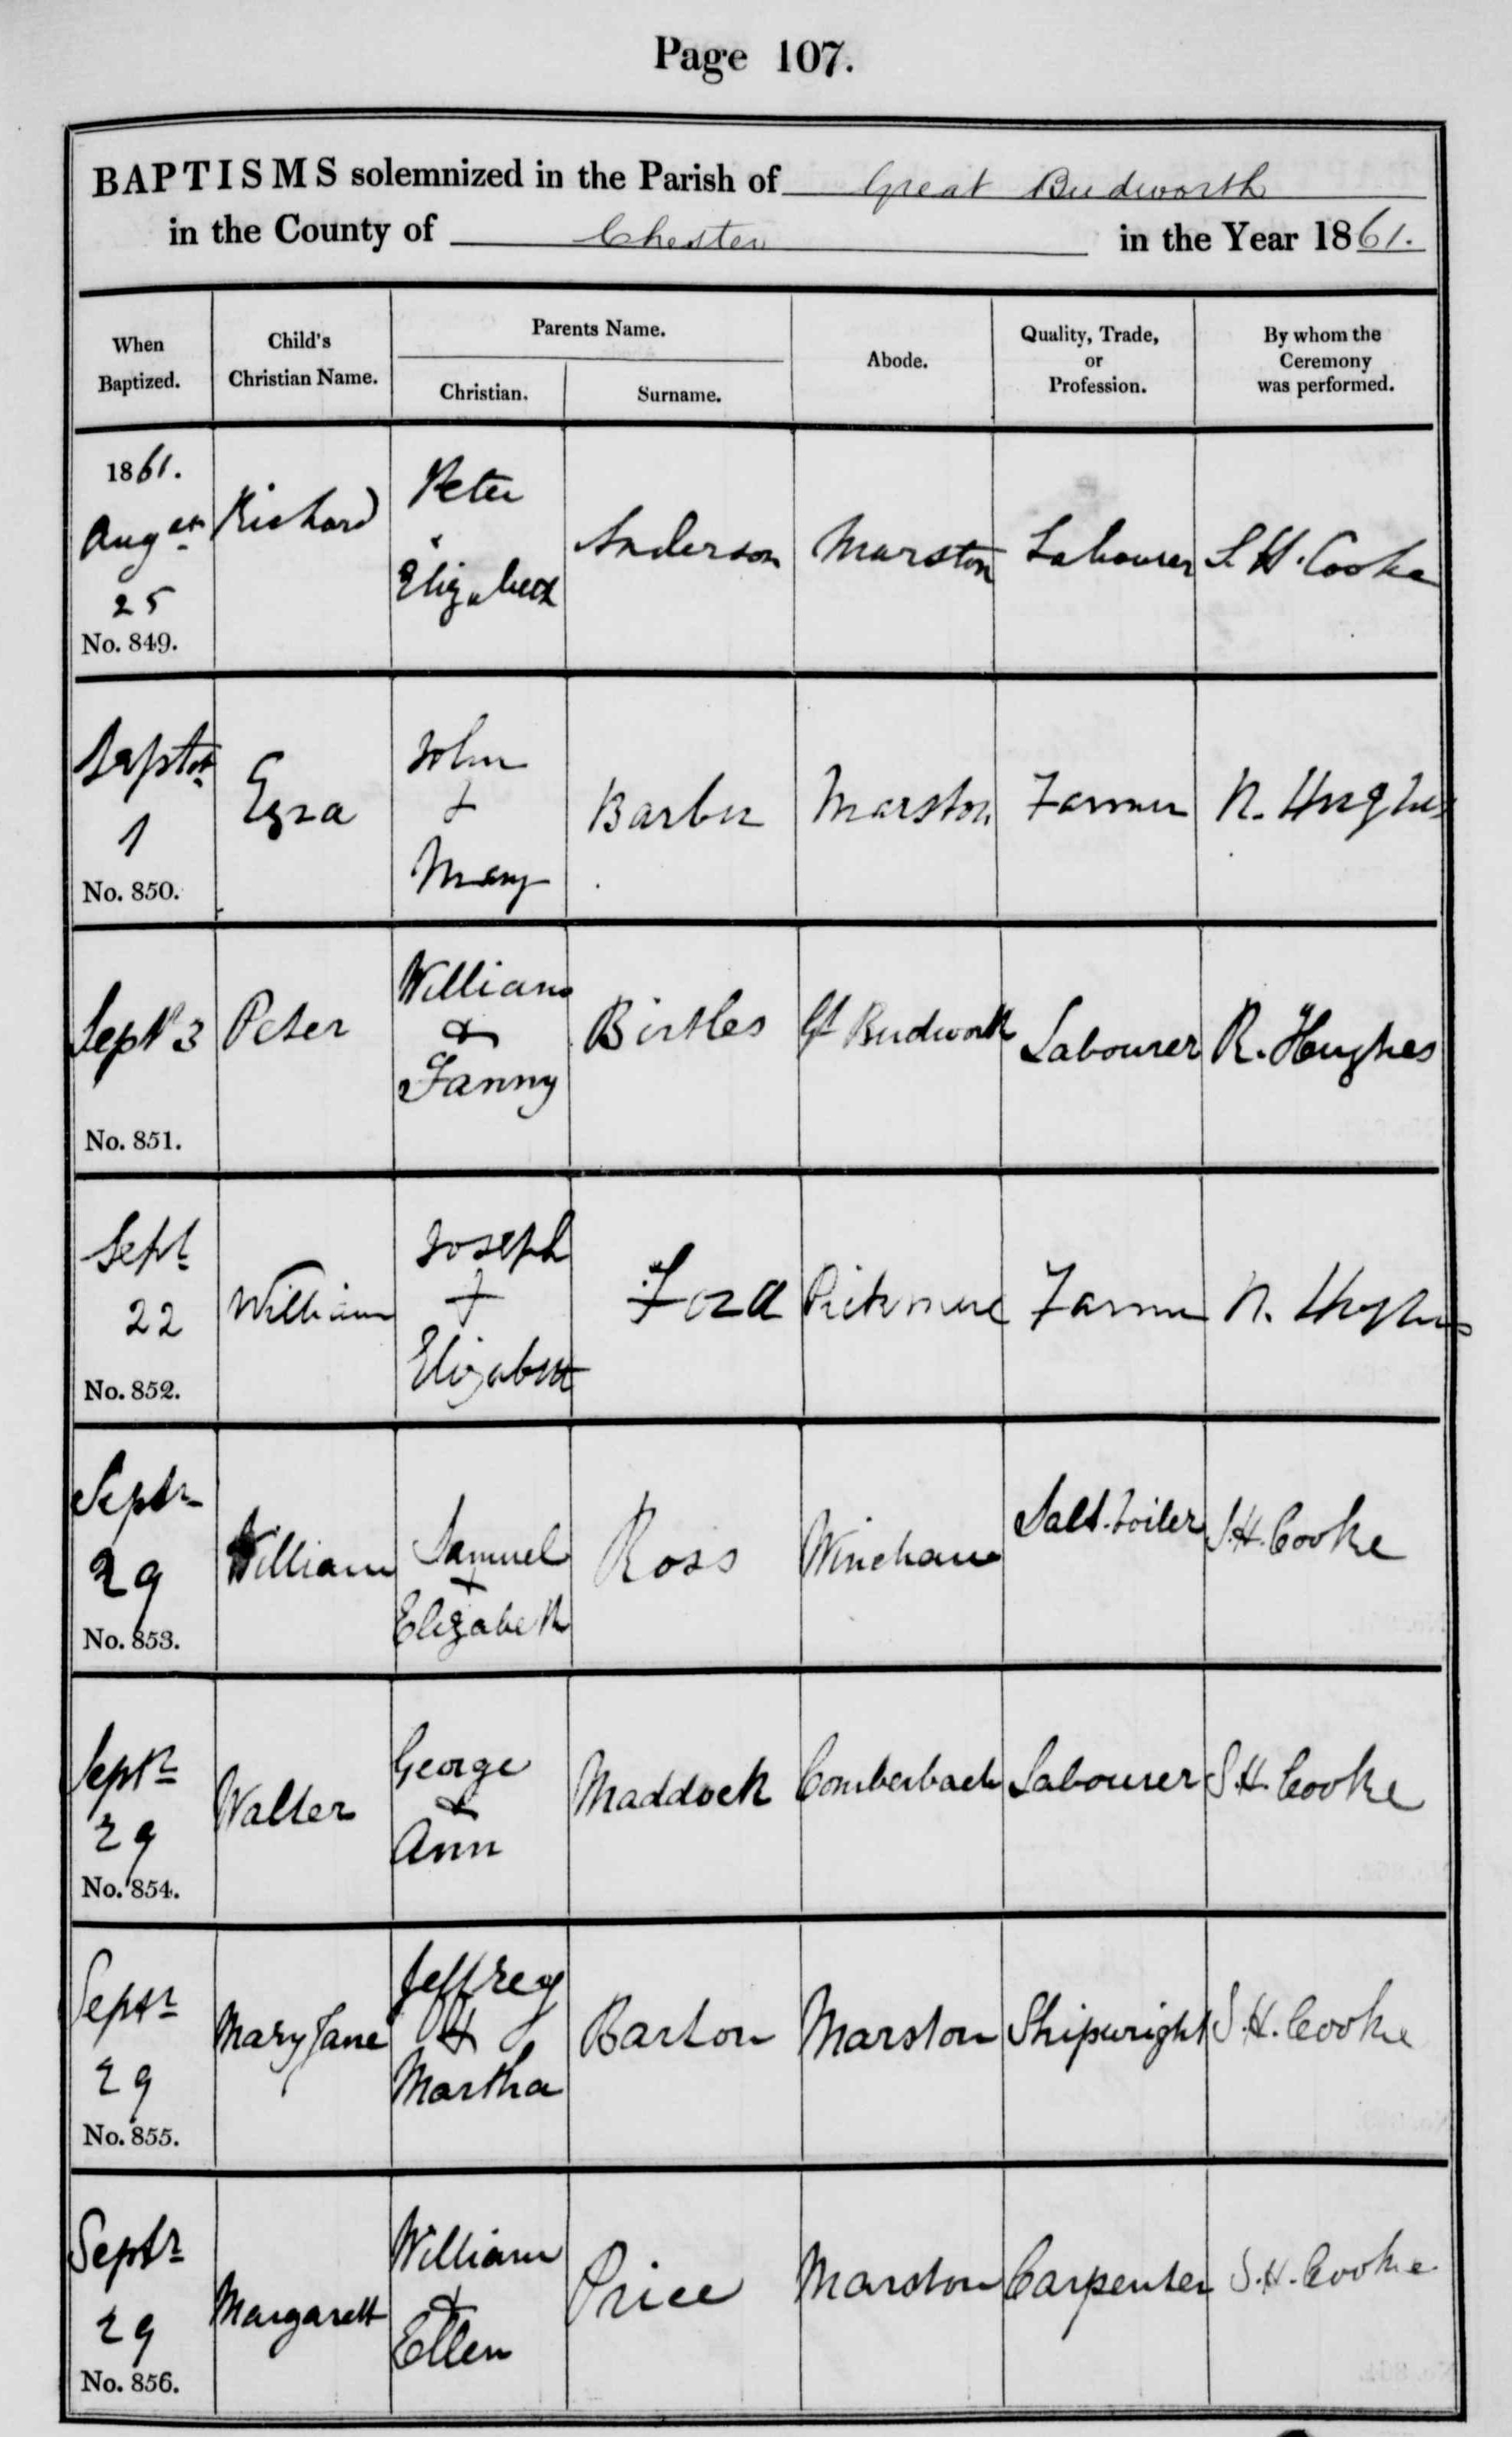 Page 107.
BAPTISMS solemnized in the Parish of Great Budworth
in the County of Chester in the Year 1861.
When Baptized. Child's Christian Name. Parents Name. Abode. Quality, Trade, or Profession. By whom the Ceremony was performed.
Christian. Surname.
1861.
Augst 25 Richard Peter & Elizabeth Anderson Marston Labourer S. H. Cooke
No. 849.
Septr 1 Ezra John + Mary Barber Marston Farmer R. Hughes
No. 850.
Septr 3 Peter William & Fanny Birtles Gt Budworth Labourer R. Hughes
No. 851.
Sept 22 William Joseph + Elizabeth Ford Pickmere Farmer R. Hughes
No. 852.
Septr 29 William Samuel + Elizabeth Ross Wincham Salt-boiler S.H. Cooke
No. 853.
Septr 29 Walter George & Ann Maddock Comberbach Labourer S.H. Cooke
No. 854.
Septr 29 Mary Jane Jeffrey & Martha Barton Marston Shipwright S.H. Cooke
No. 855.
Septr 29 Margarett William & Ellen Price Marston Carpenter S.H. Cooke
No. 856.